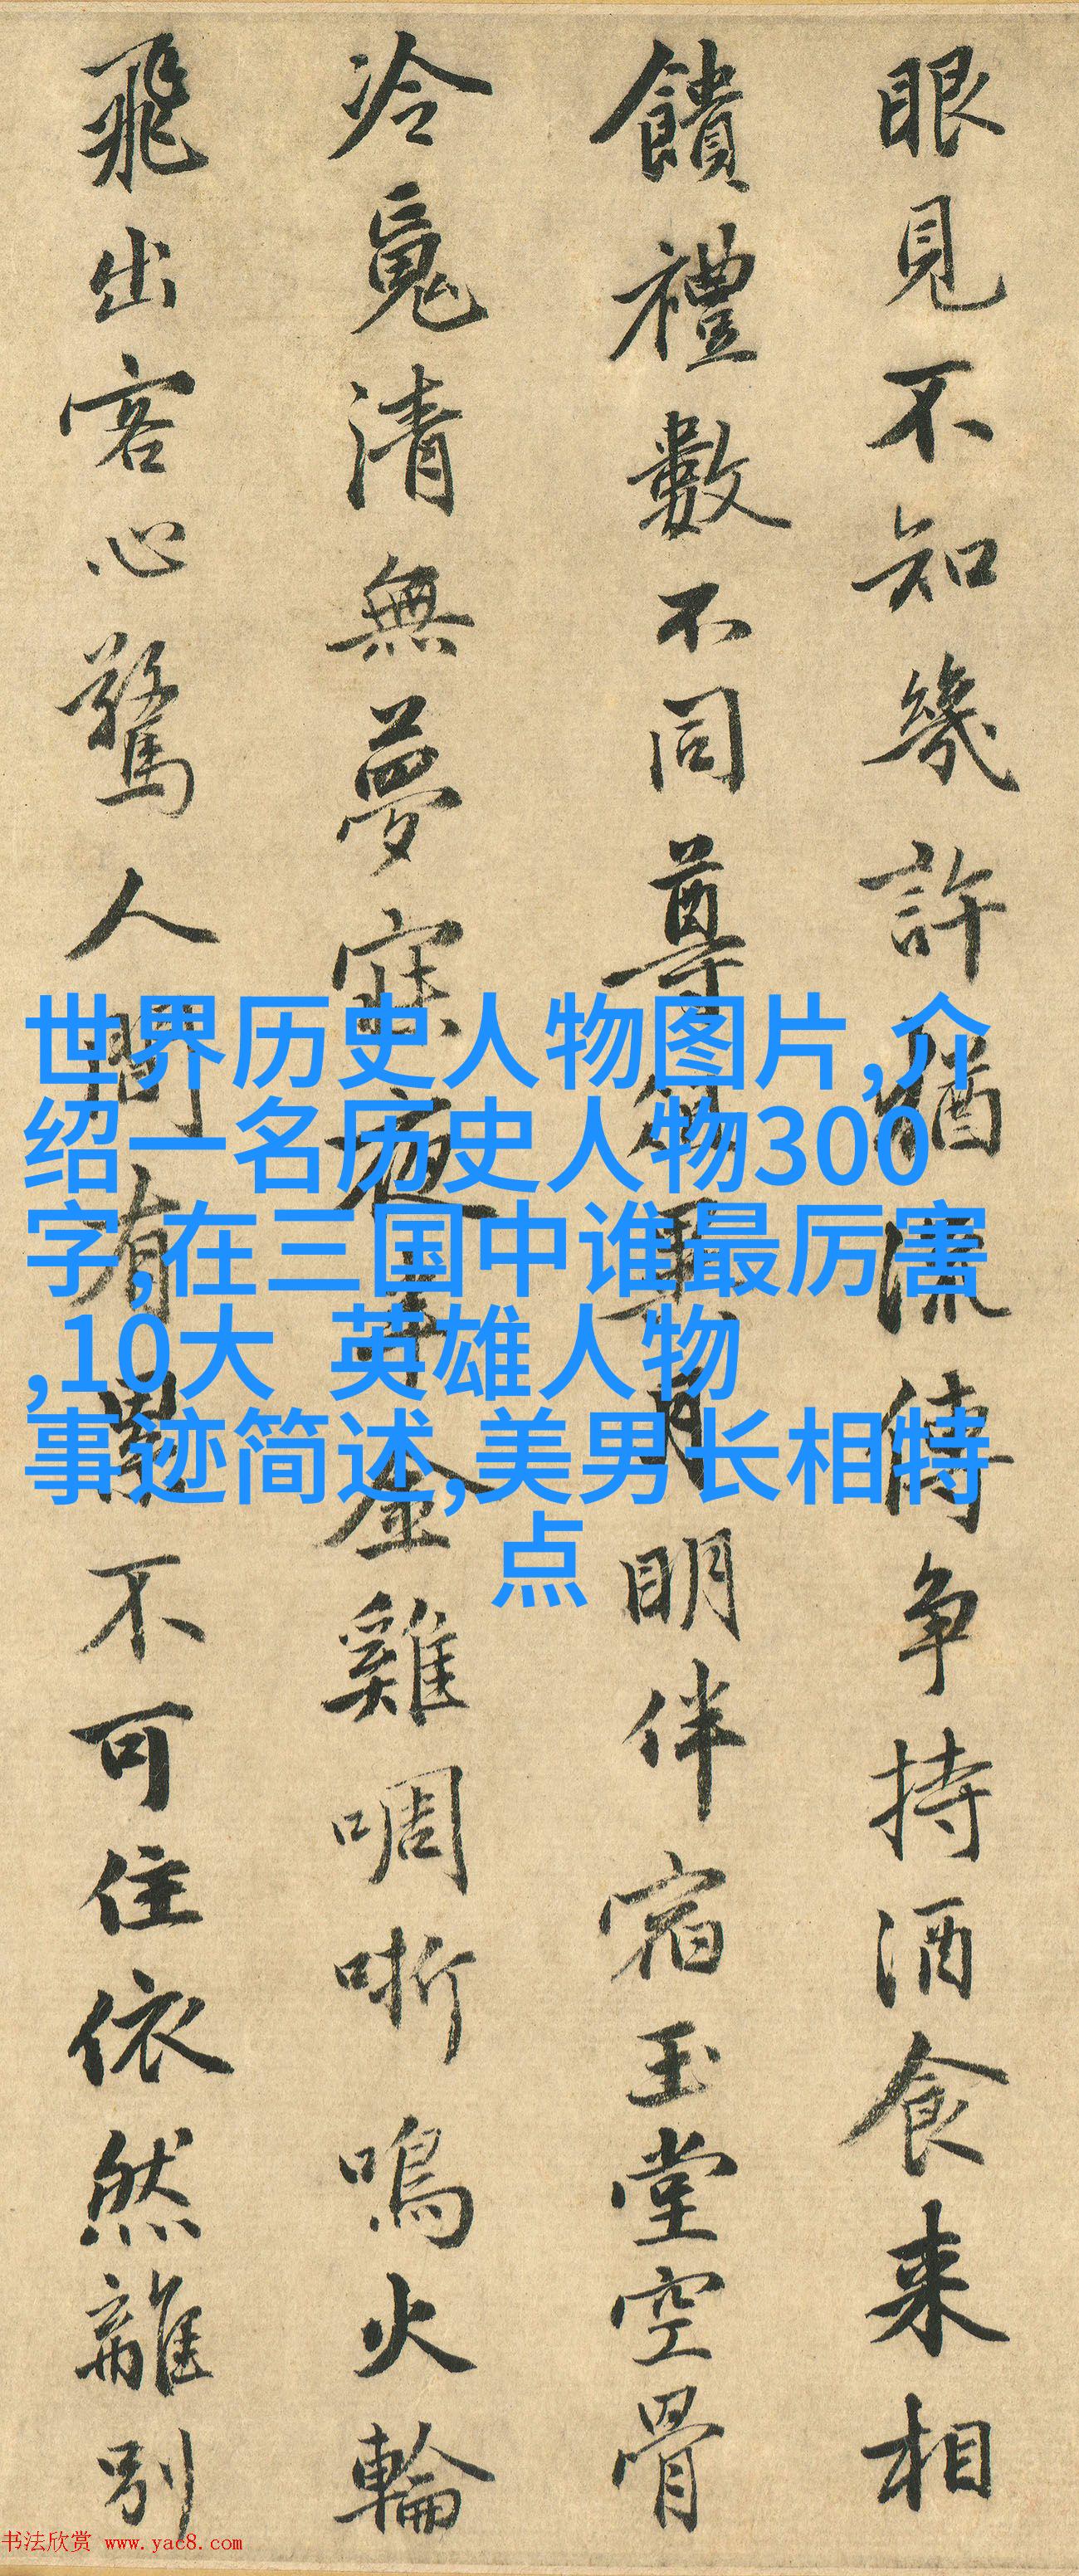 眼見不知幾許猶流傳争持酒食来相
饋禮數不同尊明伴宿玉堂空骨
冷覓清無夢寐夜金雞啁哳鳴火輪
飛出客心驚人間有累不可住依然離別
世界历史人物图片,介
绍一名历史人物300
字,在三国中谁最厉害
,10大 英雄人物
事迹简述,美男长相特
点
书法欣赏 www.yac8.com